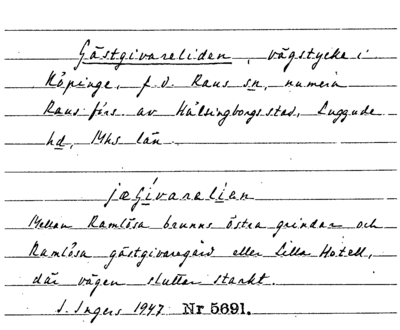 Gästgivareliden, vägstycke i
Köpinge, f.d. Raus sn, numera
Raus förs. av Hälsingborgs stad, Luggude
hd, Mhs län.
jæGivarelien
Mellan Ramlösa brunns östra grindar och
Ramlösa gästgivaregård eller Lilla Hotell,
där vägen sluttar starkt.
I. Ingers 1947 Nr 5691.